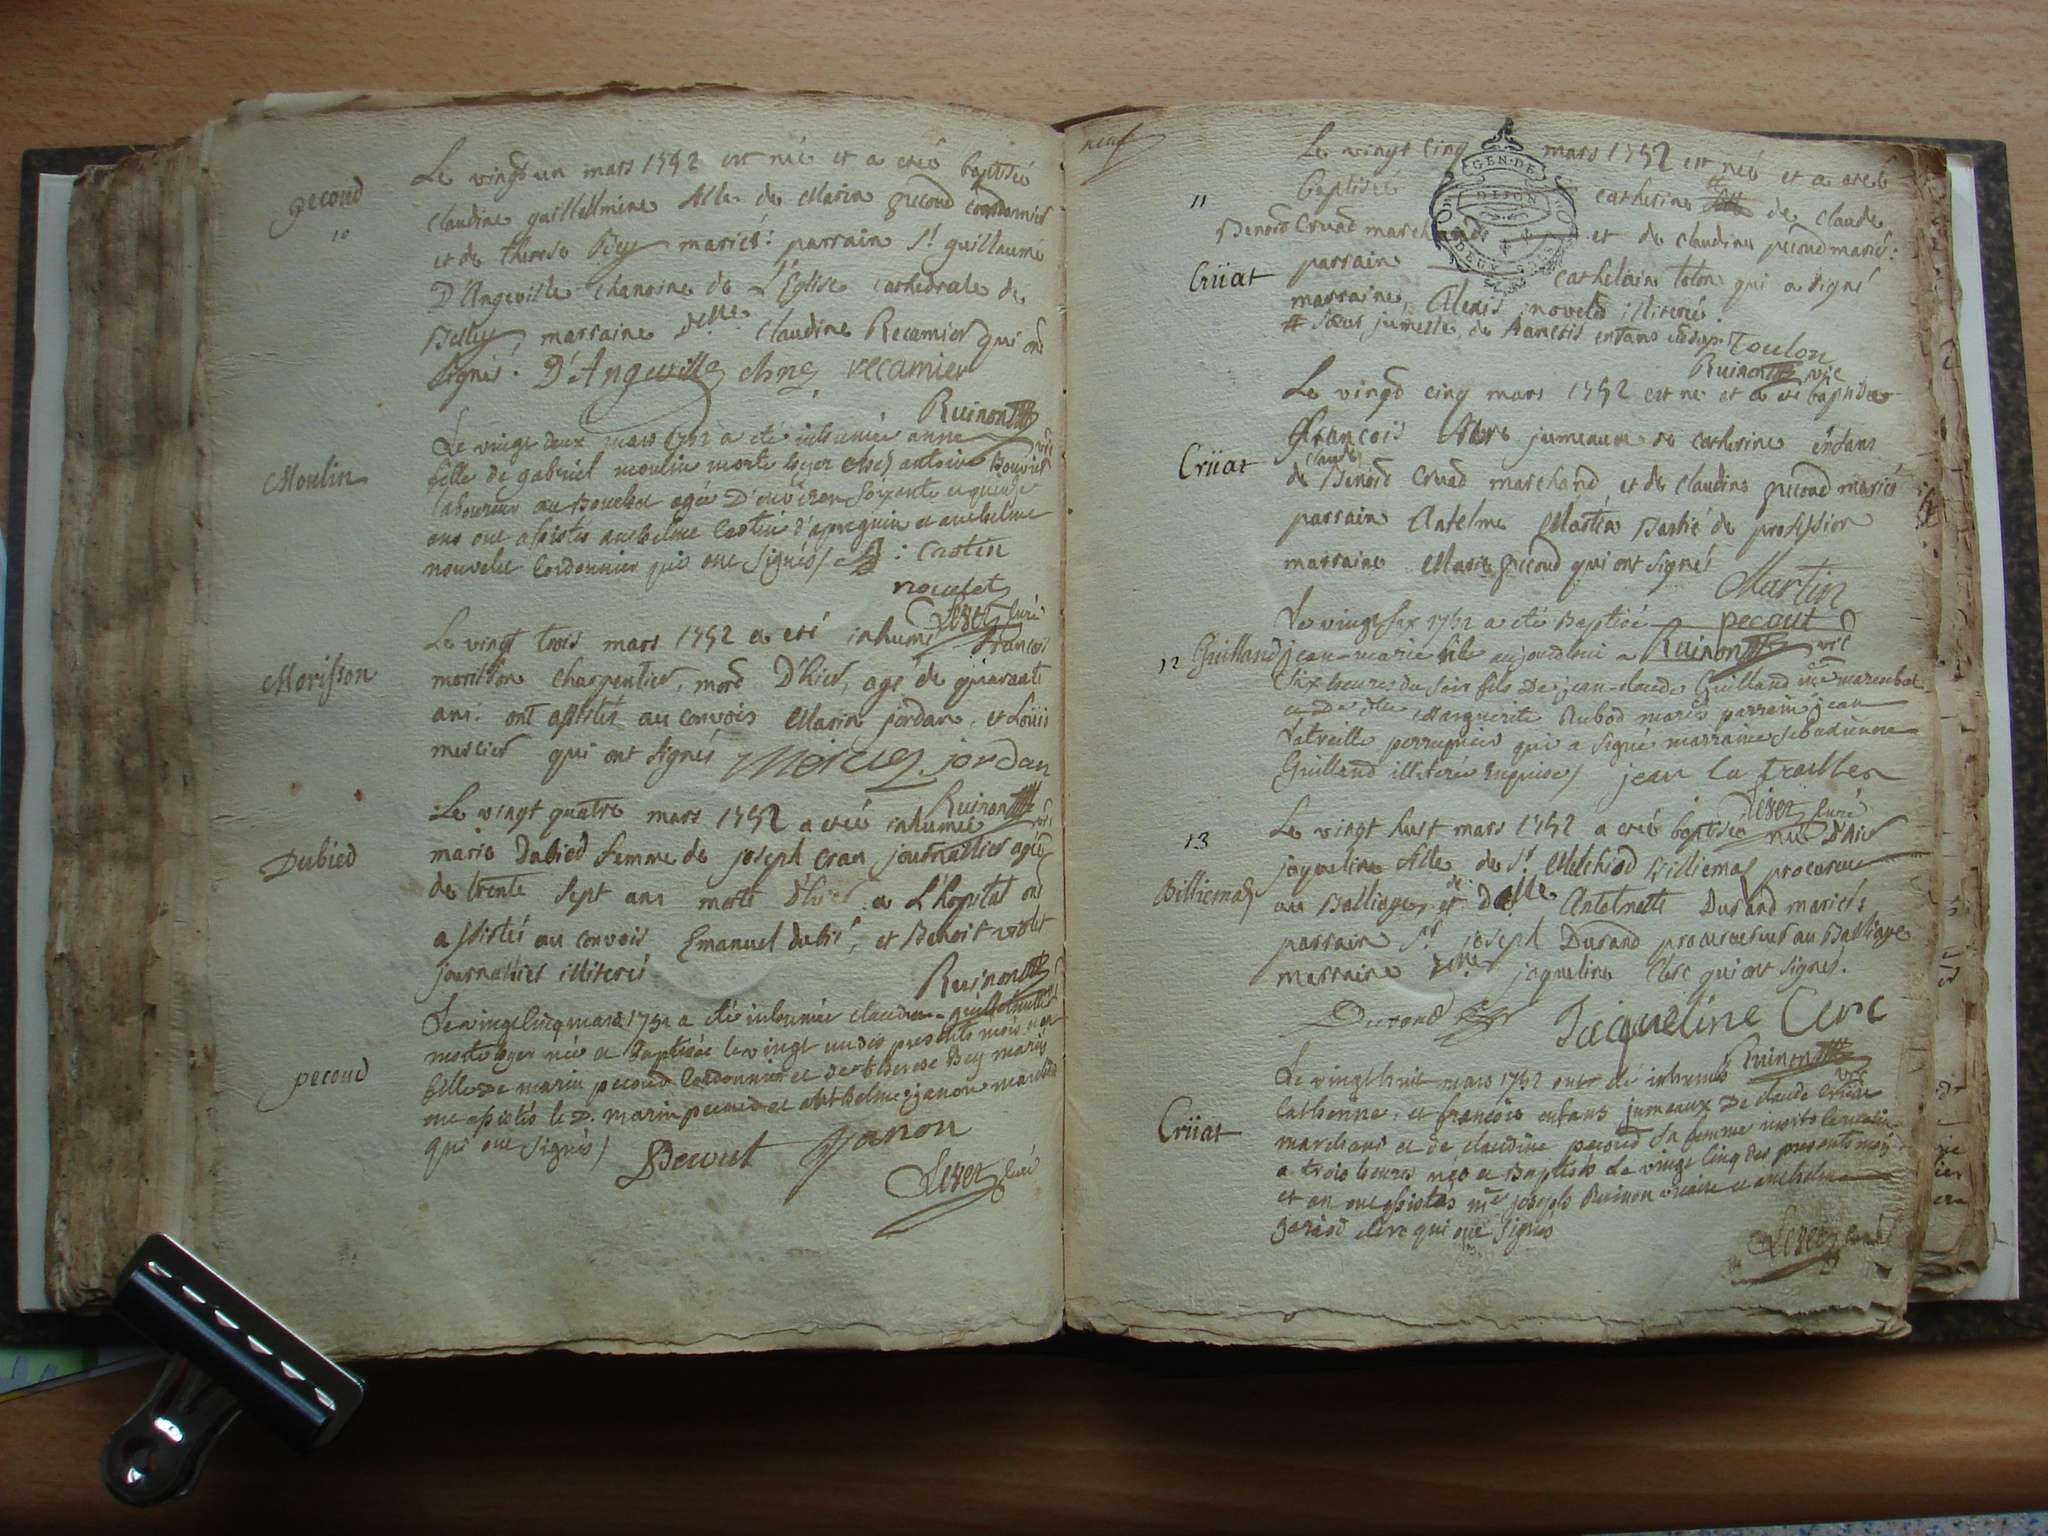 pecoud
10
Le vingt un mars 1752 est née et a été baptisée
claudine guillelmine fille de Marin pecoud cordonnier
et de therese Bey mariés: parrain Sr guillaume
D'Angeville chanoine de L'Eglise cathedrale de
Belley, marraine delle claudine Recamier qui ont
signés. D'Angeville chne recamier
Ruinon vic
Moulin
Le vingt deux mars 1752 a été inhumée anne
fille de gabriel moulin morte hyer chez antoine Bouvier
laboureur au agée D'environ soixante et quinze
ans ont assistés anthelme Castin d'apregnin et anthelme
nouvelet Cordonnier qui ont signés / A: Castin
nouvelet
curé
Morisson
Le vingt trois mars 1752 a été inhumé francois
morisson charpentier, mord D'hier, agé de quarante
ans: ont assistés au convois Marin jordan, et Loüis
mercier qui ont signés Mercier jordan
Ruinon vic
Dubied
Le vingt quatre mars 1752 a été inhumée
marie Dubied femme de joseph cran journallier agée
de trente sept ans morte d'hier a L'hopital ont
assistés au convois Emanuel dubié, et Benoit violet
journallier illiterés
Ruinon
pecoud
Le vingt cinq mars 1752 a été inhumée claudine guillelmine
morte hyer née et Baptisée le vingt un des presents mois et an
fille de marin pecoud Cordonnier et de therese Bey mariés
ont assistés le d. marin pecoud et anthelme janon
qui ont signés /
Pecout janon
curé
neuf
11
Crüat
Le vingt cinq mars 1752 est née et a été
baptisée catherine # fille de claude
Benoid Cruad marchand et de claudine pecoud mariés:
parrain cathelain tolon qui a signé
marraine, Alexis novelet illiteré.
# Sœur jumelle de francois enfans
Toulon
Ruinon vic
GEN·DE
DIJON
DEUX S
Crüat
Le vingt cinq mars 1752 est né et a été baptisé
francois frere jumeaux de catherine enfans
de claude Benoid Cruad marchand, et de claudine pecoud mariés
parrain Antelme Martin Barbié de profession
marraine Marie pecoud qui ont signés
Martin
pecout
Ruinon vic
12 Guilland
Le vingt six 1752 a été Baptisé
jean-marie né aujourdhui a
six heures du soir fils de jean-claude Guilland
et de dlle Marguerite Rubod mariés parrain jean
Latreille perruquier qui a signé marraine
Guilland illiterée enquise / jean la trailler
curé
13
Billiemaz
Le vingt huit mars 1752 a été baptisée née D'hier
jaqueline fille de Sr Melchiod Billiemaz procureur
au Balliage, et de Delle Antelmette Durand mariés:
parrain Sr joseph Durand procureur au Balliage
marraine delle jaqueline Clerc qui ont signés.
Durand Jacqueline Clerc
Ruinon vic
Crüat
Le vingt huit mars 1752 ont été inhumés
Catherine, et francois enfans jumeaux De claude Crüat
marchand et de claudine pecoud sa femme morts
a trois heures nés et Baptisés Le vingt cinq des presents mois
et an ont assistés me joseph Ruinon vicaire et anthelme
clerc qui ont signés
curé